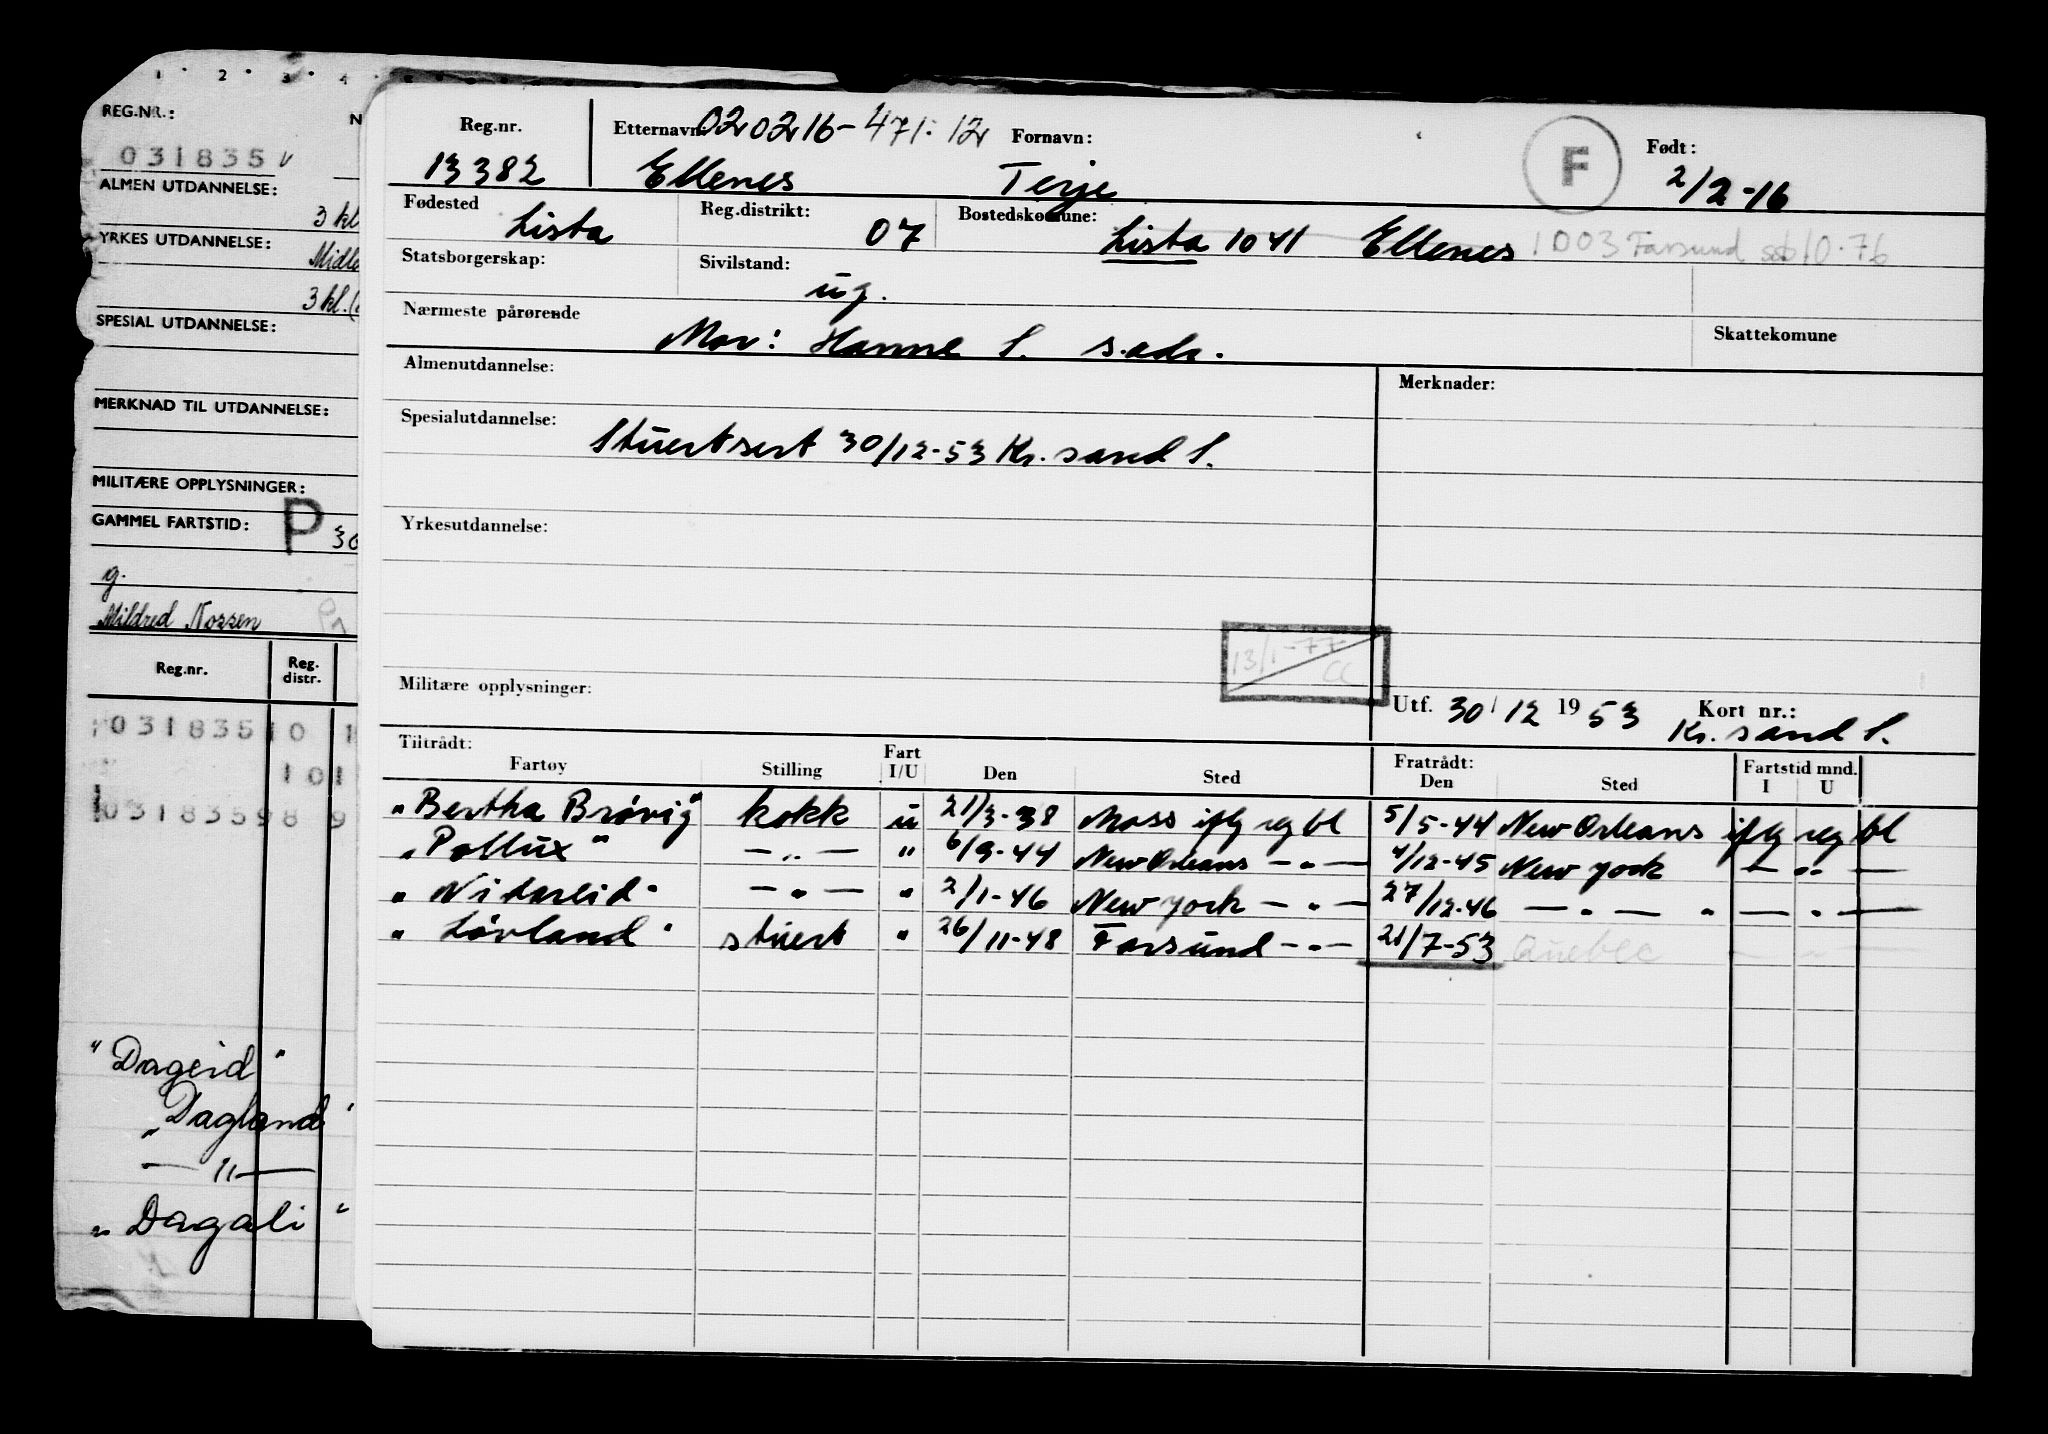 1 2 3 4
REG.NR.:
N
031835 v
ALMEN UTDANNELSE:
3 kl
YRKES UTDANNELSE:
3 kl.
SPESIAL UTDANNELSE:
MERKNAD TIL UTDANNELSE:
MILITÆRE OPPLYSNINGER:
GAMMEL FARTSTID: P 30
g.
Mildred Nossen
Reg.nr. Reg. distr.
031835 10 1
101
03183598 9
"Dageid"
"Dagland"
— " —
"Dagali"
Reg.nr. Etternavn: 020216-471.12 Fornavn: F Født:
13382 Ellenes Terje 2/2-16
Fødested Reg.distrikt: Bostedskomune:
Lista 07 Lista 1041 Ellenes 1003 Farsund 10.76
Statsborgerskap: Sivilstand:
ug.
Nærmeste pårørende Skattekomune
Mor: Hanne S. s.adr.
Almenutdannelse: Merknader:
Spesialutdannelse:
Stuertsert 30/12-53 Kr.sand S.
Yrkesutdannelse:
13/1-77
Militære opplysninger:
Utf. 30/12 1953 Kort nr.:
Kr.sand S.
Tiltrådt: Fart Fratrådt: Fartstid mnd.
Fartøy Stilling I/U Den Sted Den Sted I U
"Bertha Brøvig" kokk u 21/3-38 Moss iflg reg bl 5/5-44 New Orleans iflg reg bl
"Pollux" — " — " 6/9-44 New Orleans — " — 4/12-45 New York — " —
"Nidareid" — " — " 2/1-46 New York — " — 27/12-46 — " — " — " —
"Løvland" stuert " 26/11-48 Farsund — " — 21/7-53 Quebec — " —